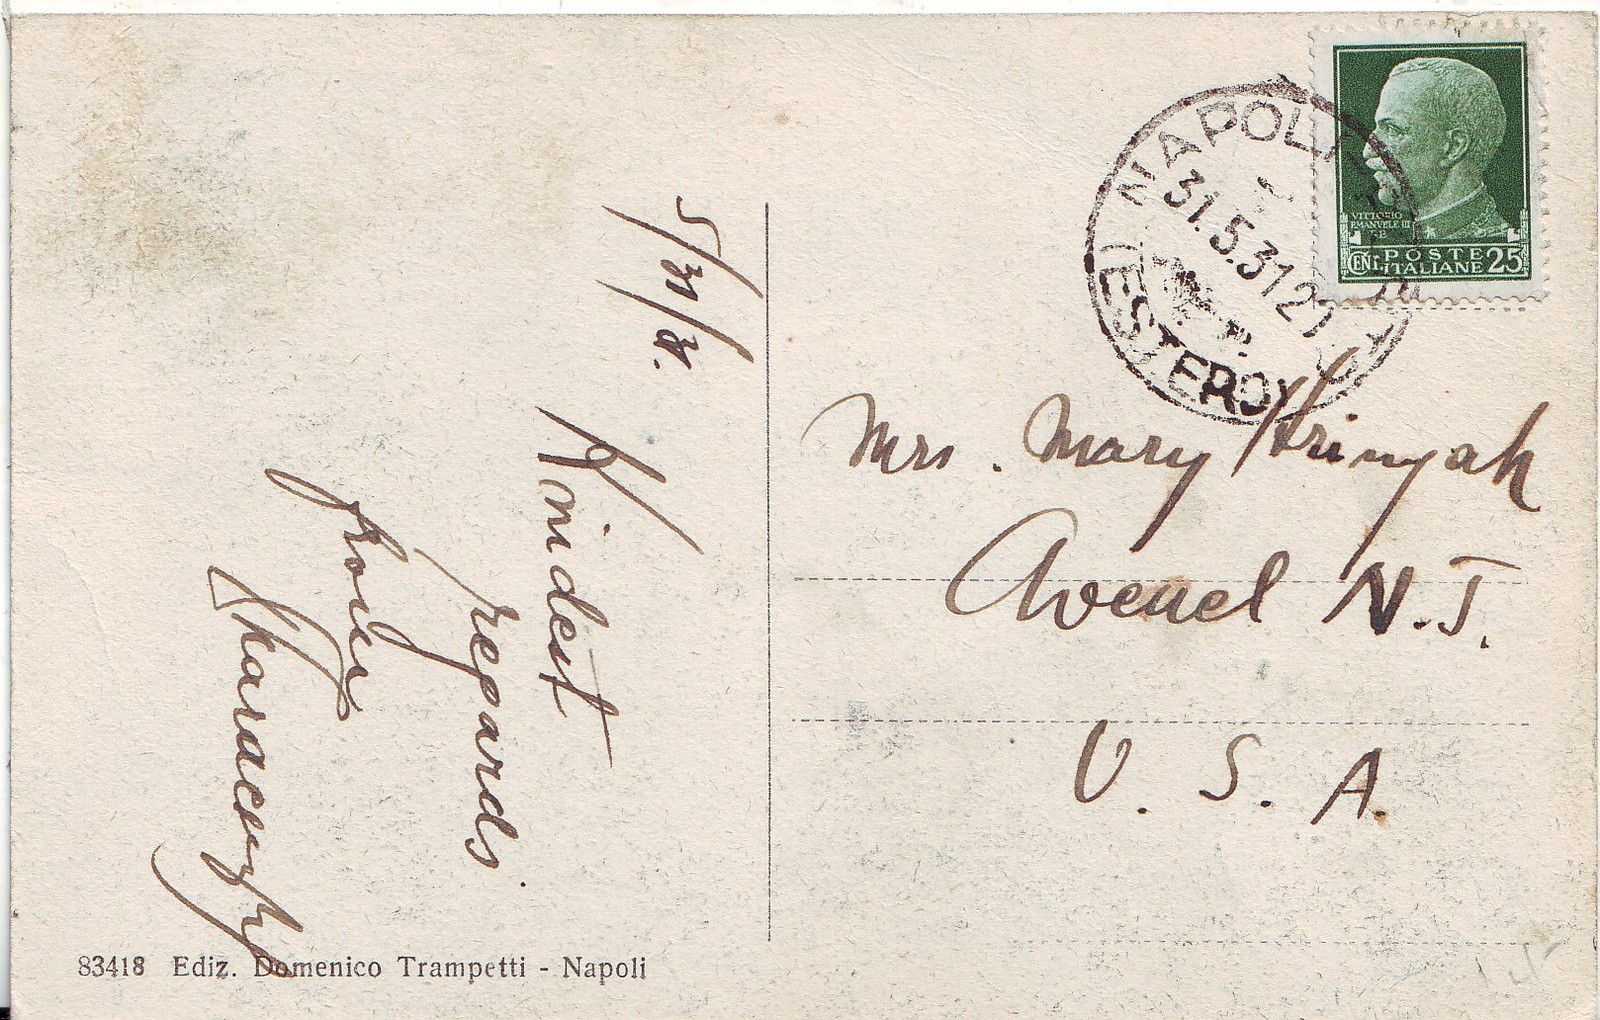 5/31/31.
Kindest
regards
from
NAPOLI
31.5.31 21
(ESTERO)
VITTORIO
EMANVELE III
CENT. POSTE
ITALIANE 25
Mrs. Mary
Avenel N.J.
U. S. A.
83418 Ediz. Domenico Trampetti - Napoli